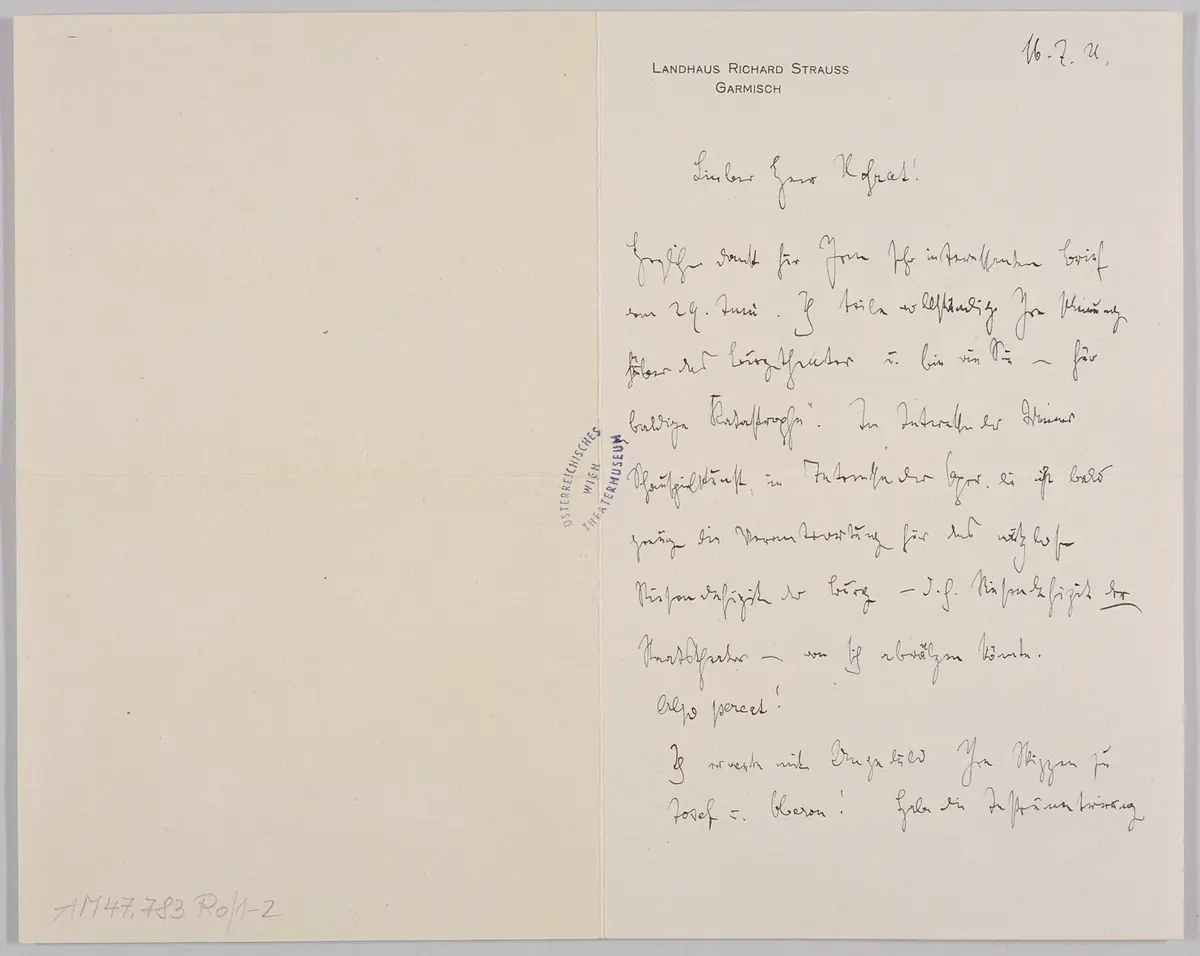 LANDHAUS RICHARD STRAUSS
GARMISCH
16. 7. 21.
Lieber Herr Hofrat!
Herzlichen Dank für Ihren sehr interessanten Brief
vom 29. Juni. Ich teile vollständig Ihre Meinung
über das Burgtheater u. bin wie Sie – für
baldige „Katastrophe“. Im Interesse der Wiener
Schauspielkunst, im Interesse der Oper, die jetzt bald
genug die Verantwortung für das nutzlose
Riesendefizit der Burg – d.h. Riesendefizit der
Staatstheater – von sich abwälzen könnte.
Also pereat!
Ich erwarte mit Ungeduld Ihre Skizzen zu
Josef u. Oberon! Habe die Instrumentierung
ÖSTERREICHISCHES
WIEN
THEATERMUSEUM
AM47.783 Ro/1-2